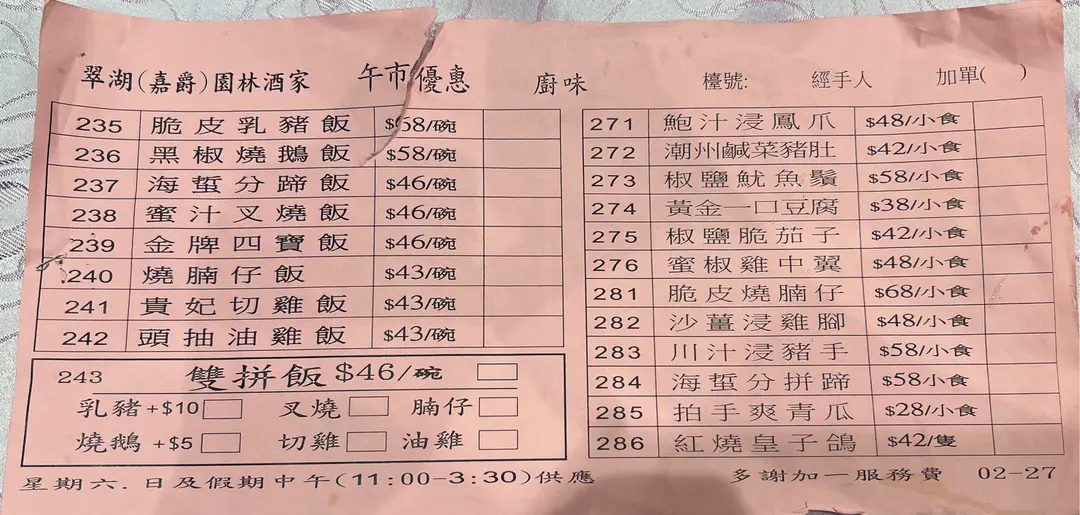 翠湖(嘉爵)園林酒家 午市優惠 廚味 檯號: 經手人 加單( )
235 脆皮乳豬飯 $58/碗
236 黑椒燒鵝飯 $58/碗
237 海蜇分蹄飯 $46/碗
238 蜜汁叉燒飯 $46/碗
239 金牌四寶飯 $46/碗
240 燒腩仔飯 $43/碗
241 貴妃切雞飯 $43/碗
242 頭抽油雞飯 $43/碗
243 雙拼飯 $46/碗
乳豬+$10 叉燒 腩仔
燒鵝+$5 切雞 油雞
271 鮑汁浸鳳爪 $48/小食
272 潮州鹹菜豬肚 $42/小食
273 椒鹽魷魚鬚 $58/小食
274 黃金一口豆腐 $38/小食
275 椒鹽脆茄子 $42/小食
276 蜜椒雞中翼 $48/小食
281 脆皮燒腩仔 $68/小食
282 沙薑浸雞腳 $48/小食
283 川汁浸豬手 $58/小食
284 海蜇分拼蹄 $58/小食
285 拍手爽青瓜 $28/小食
286 紅燒皇子鴿 $42/隻
星期六.日及假期中午(11:00-3:30)供應 多謝加一服務費 02-27